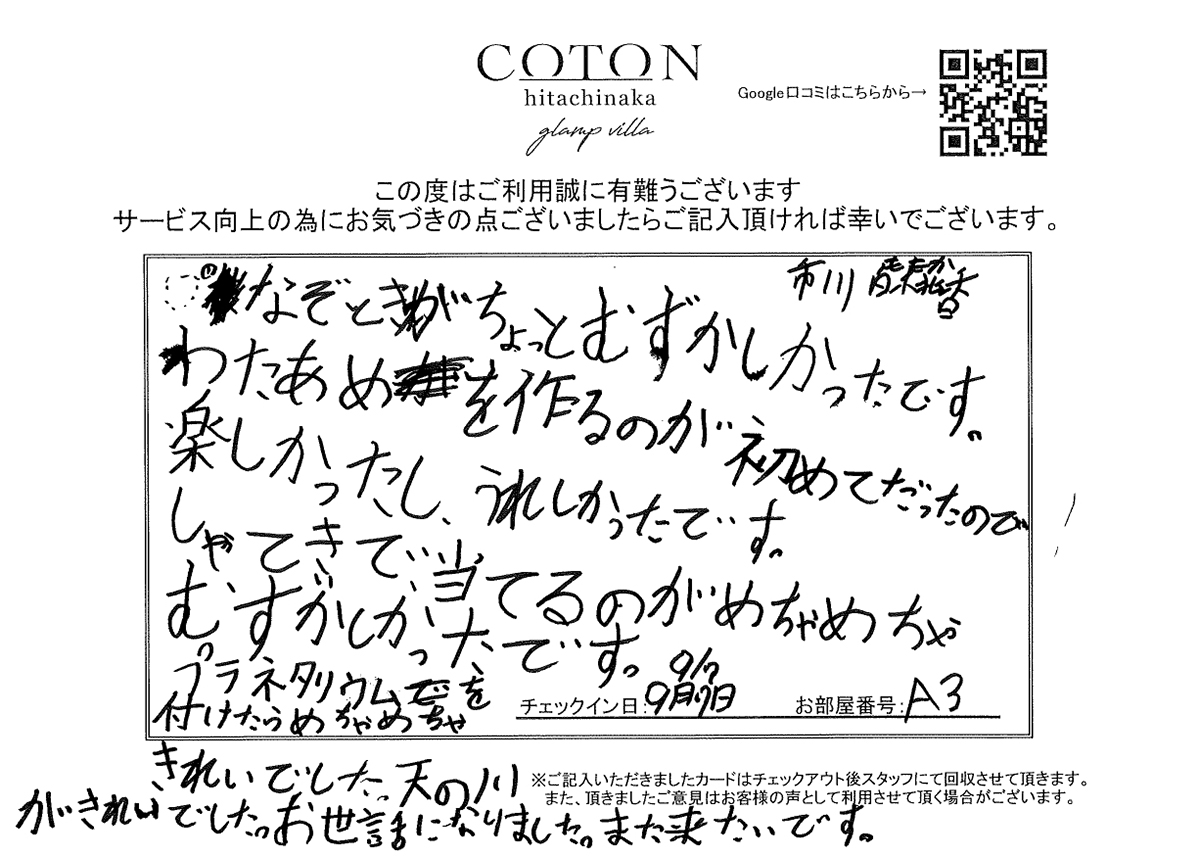 COTON
hitachinaka
glamp villa
Google口コミはこちらから→
この度はご利用誠に有難うございます
サービス向上の為にお気づきの点ございましたらご記入頂ければ幸いでございます。
市川
なぞときがちょっとむずかしかったです。
わたあめを作るのが初めてだったので
楽しかったし、うれしかったです。
しゃてきで当てるのがめちゃめちゃ
むずかしかったです。
プラネタリウムを
付けたらめちゃめちゃ
チェックイン日:9月7日
9/7
お部屋番号:A3
きれいでした。天の川
がきれいでした。お世話になりました。また来たいです。
※ご記入いただきましたカードはチェックアウト後スタッフにて回収させて頂きます。
また、頂きましたご意見はお客様の声として利用させて頂く場合がございます。